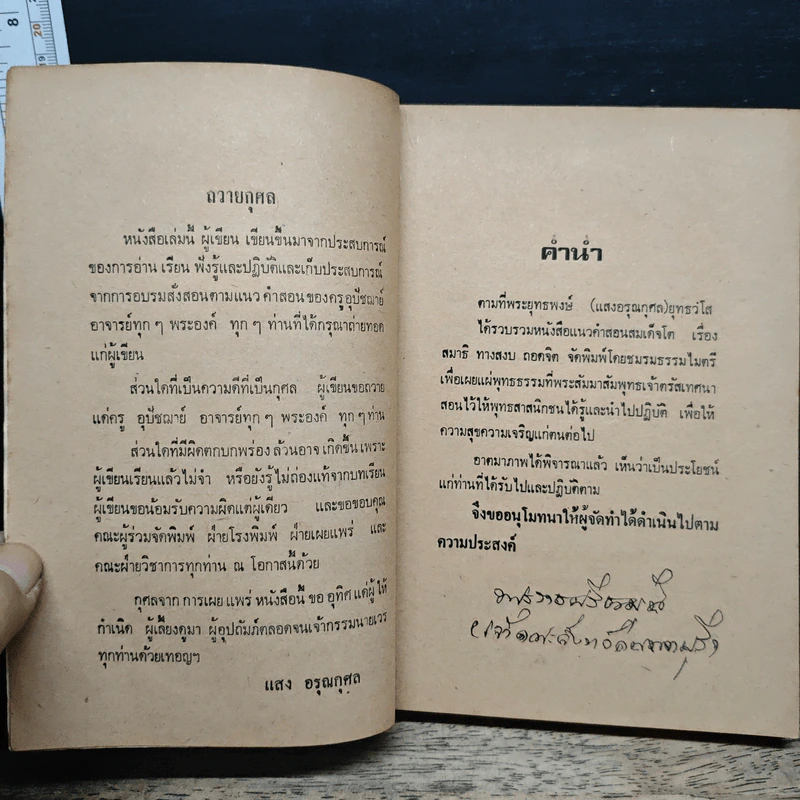 8
20
19
ถวายกุศล
หนังสือเล่มนี้ ผู้เขียน เขียนขึ้นมาจากประสบการณ์
ของการอ่าน เรียน ฟังรู้และปฎิบัติและเก็บประสบการณ์
จากการอบรมสั่งสอนตามแนว คำสอนของครูอุปัชฌาย์
อาจารย์ทุก ๆ พระองค์ ทุก ๆ ท่านที่ได้กรุณาถ่ายทอด
แก่ผู้เขียน
ส่วนใดที่เป็นความดีที่เป็นกุศล ผู้เขียนขอถวาย
แด่ครู อุปัชฌาย์ อาจารย์ทุก ๆ พระองค์ ทุก ๆ ท่าน
ส่วนใดที่มีผิดตกบกพร่อง ล้วนอาจ เกิดขึ้น เพราะ
ผู้เขียนเรียนแล้วไม่จำ หรือยังรู้ไม่ถ่องแท้จากบทเรียน
ผู้เขียนขอน้อมรับความผิดแต่ผู้เดียว และขอขอบคุณ
คณะผู้ร่วมจัดพิมพ์ ฝ่ายโรงพิมพ์ ฝ่ายเผยแพร่ และ
คณะฝ่ายวิชาการทุกท่าน ณ โอกาสนี้ด้วย
กุศลจาก การเผย แพร่ หนังสือนี้ ขอ อุทิศ แด่ผู้ ให้
กำเนิด ผู้เลี้ยงดูมา ผู้อุปถัมภ์ตลอดจนเจ้ากรรมนายเวร
ทุกท่านด้วยเทอญฯ
แสง อรุณกุศล
คำนำ
ตามที่พระยุทธพงษ์ (แสงอรุณกุศล)ยุทธวํโส
ได้รวบรวมหนังสือแนวคำสอนสมเด็จโต เรื่อง
สมาธิ ทางสงบ ถอดจิต จัดพิมพ์โดยชมรมธรรมไมตรี
เพื่อเผยแผ่พุทธธรรมที่พระสัมมาสัมพุทธเจ้าตรัสเทศนา
สอนไว้ให้พุทธสาสนิกชนได้รู้และนำไปปฎิบัติ เพื่อให้
ความสุขความเจริญแก่ตนต่อไป
อาตมาภาพได้พิจารณาแล้ว เห็นว่าเป็นประโยชน์
แก่ท่านที่ได้รับไปและปฎิบัติตาม
จึงขออนุโมทนาให้ผู้จัดทำได้ดำเนินไปตาม
ความประสงค์